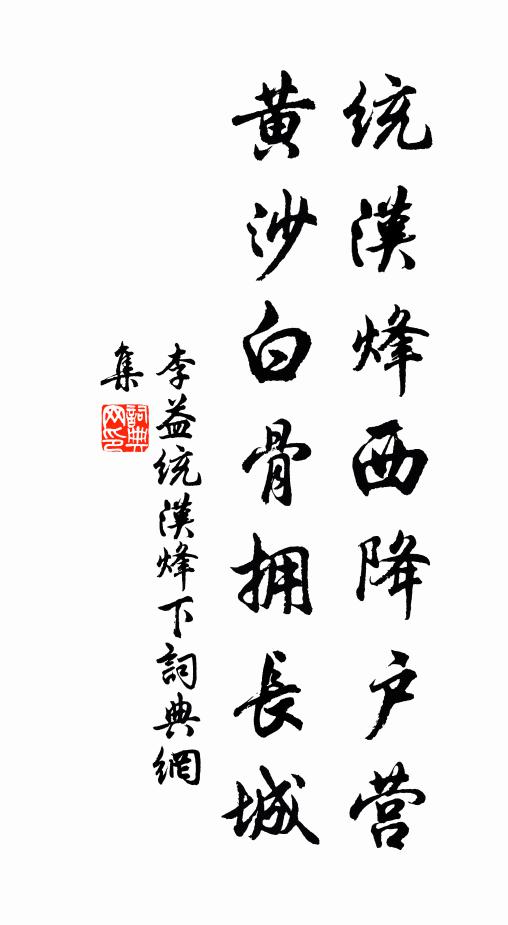 统漢烽西降户营
黄沙白骨拥長城
李益统漢烽下詞典網
集
詞典网印